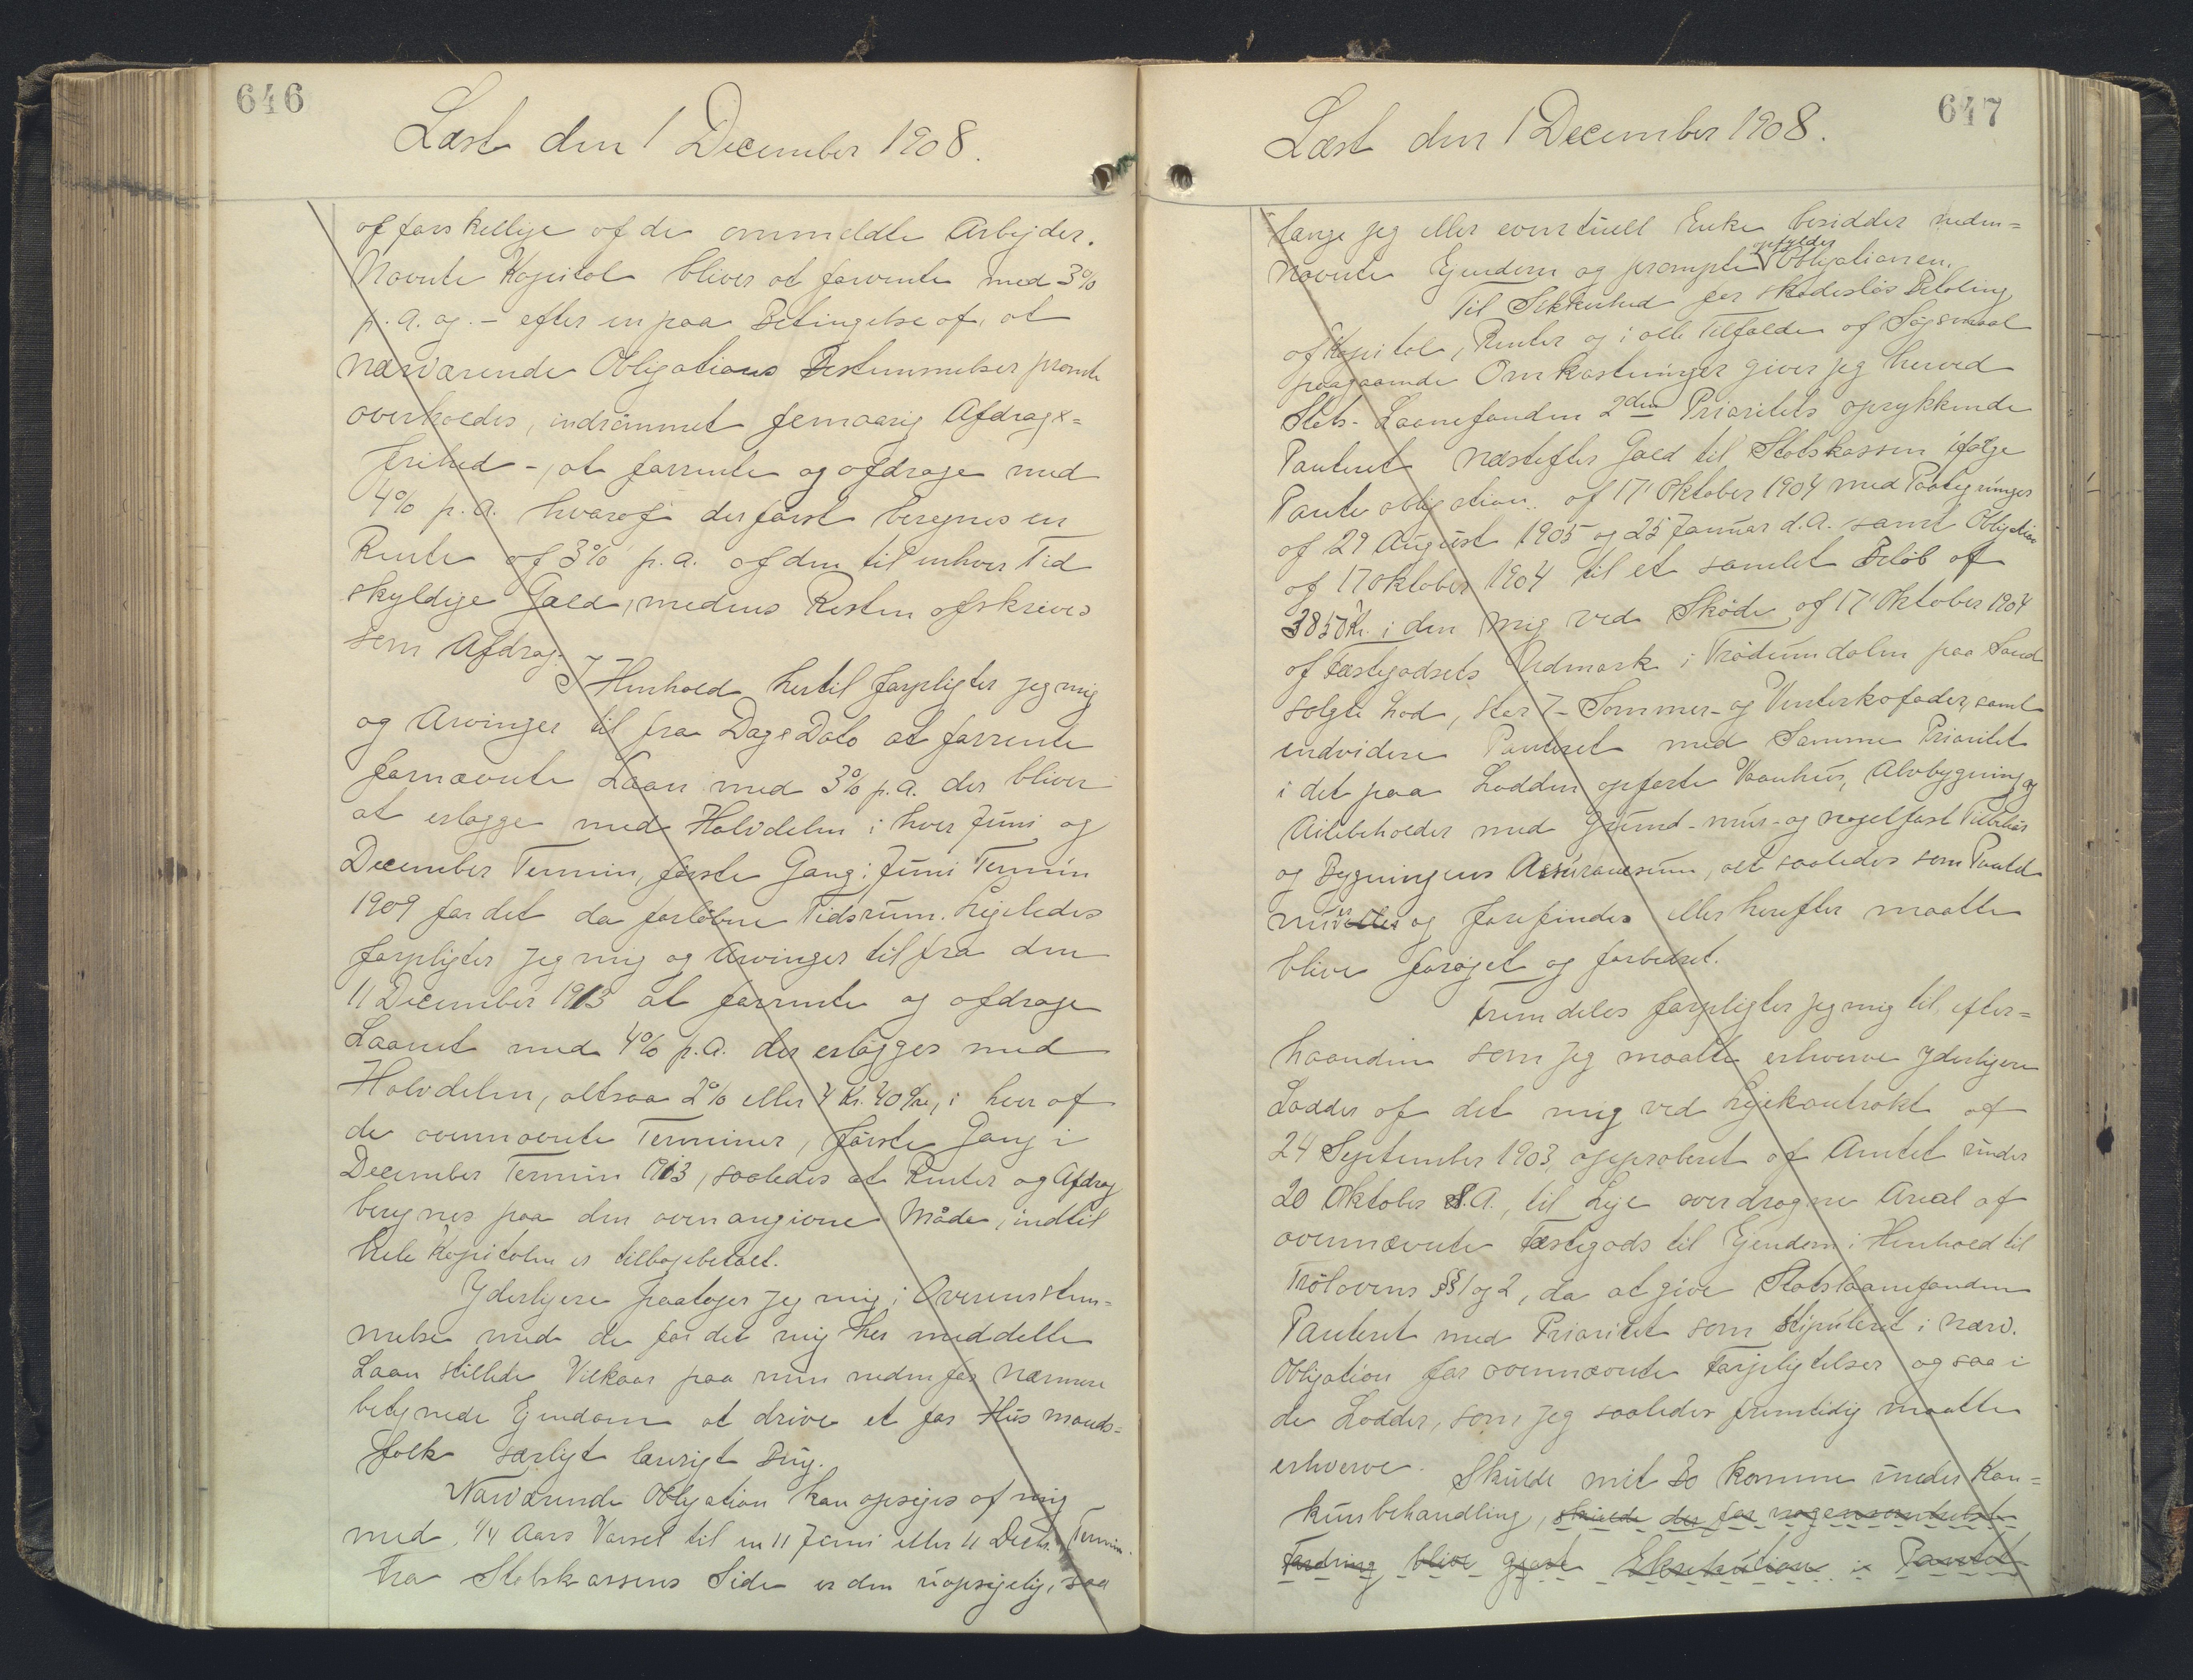 646
Læst den 1 December 1908.
af forskellige af de ommeldte Arbejder.
Nævnte Kapital bliver at forrente med 3%
p.a. og - efter en paa Betingelse af, at
nærværende Obligations Bestemmelser promte
overholdes, indrömmet femaarig Afdrags=
frihed -, at forrente og afdrage med
4% p.a. hvoraf der først beregnes en
Rente af 3% p.a. af den til enhver Tid
skyldige Gæld, medens Resten afskrives
som Afdrag.
I Henhold hertil forpligter jeg mig
og Arvinger til fra Dags Dato at forrente
fornævnte Laan med 3% p.a. der bliver
at erlægge med Halvdelen i hver Juni og
December Termin, förste Gang i Juni Termin
1909 for det da forløbne Tidsrum. Ligeledes
forpligter jeg mig og Arvinger til fra den
11 December 1913 at forrente og afdrage
Laanet med 4% p.a. der erlægges med
Halvdelen, altsaa 2% eller 4 Kr. 40 Øre, i hver af
de ovennævnte Terminer, förste Gang i
December Termin 1913, saaledes at Renter og Afdrag
beregnes paa den ovenangivne Måde, indtil
hele Kapitalen er tilbagebetalt.
Yderligere paatager jeg mig i Overensstem=
melse med de for det mig her meddelte
Laan stillede Vilkaar paa min nedenfor nærmere
betegnede Ejendom at drive et for Husmands=
folk særligt lærerigt Brug.
Nærværende Obligation kan opsiges af mig
med 1/4 Aars Varsel til en 11 Juni eller 11 Decbr. Termin.
Fra Statskassens Side er den uopsigelig, saa
647
Læst den 1 December 1908.
længe jeg eller eventuelt Enke besidder neden=
nævnte Ejendom og prompte opfylder Obligationen.
Til Sikkerhed for skadeslös Betaling
af Kapital, Renter og i alle Tilfælde af Søgsmaal
paagaaende Omkostninger giver jeg herved
Stats-Laanefonden 2den Prioritets oprykkende
Panteret næstefter Gæld til Statskassen ifølge
Panteobligation af 17 Oktober 1904 med Paategninger
af 29 August 1905 og 25 Januar d.A. samt Obligation
af 17 Oktober 1904 til et samlet Beløb af
3850 Kr. i den mig ved Skøde af 17 Oktober 1904
af Fæstegodsets Udmark i Trödumdalen paa Sand
solgte Lod, stor 7 Sommer- og Vinterkofoder, samt
endvidere Panteret med Samme Prioritet
i det paa Lodden opførte Vaanhus, Avlsbygning og
Ajlebeholder med grund- mur- og nagelfast Tilbehør
og Bygningens Assurancesum, alt saaledes som Pantet
nu er og forefindes eller herefter maatte
blive forøget og forbedret.
Fremdeles forpligter jeg mig til, efter=
haanden som jeg maatte erhverve yderligere
Lodder af det mig ved Lejekontrakt af
24 September 1903, approberet af Amtet under
20 Oktober s.A., til Leje overdragne Areal af
ovennævnte Fæstegods til Ejendom i Henhold til
Trølovens §§ 1 og 2, da at give Statslaanefonden
Panteret med Prioritet som stipuleret i nærv.
Obligation for ovennævnte Forpligtelser ogsaa i
de Lodder, som jeg saaledes fremtidig maatte
erhverve.
Skulde mit Bo komme under Kon=
kursbehandling, skulde der for nogensomhelst
Fordring blive gjort Eksekution i Pantet